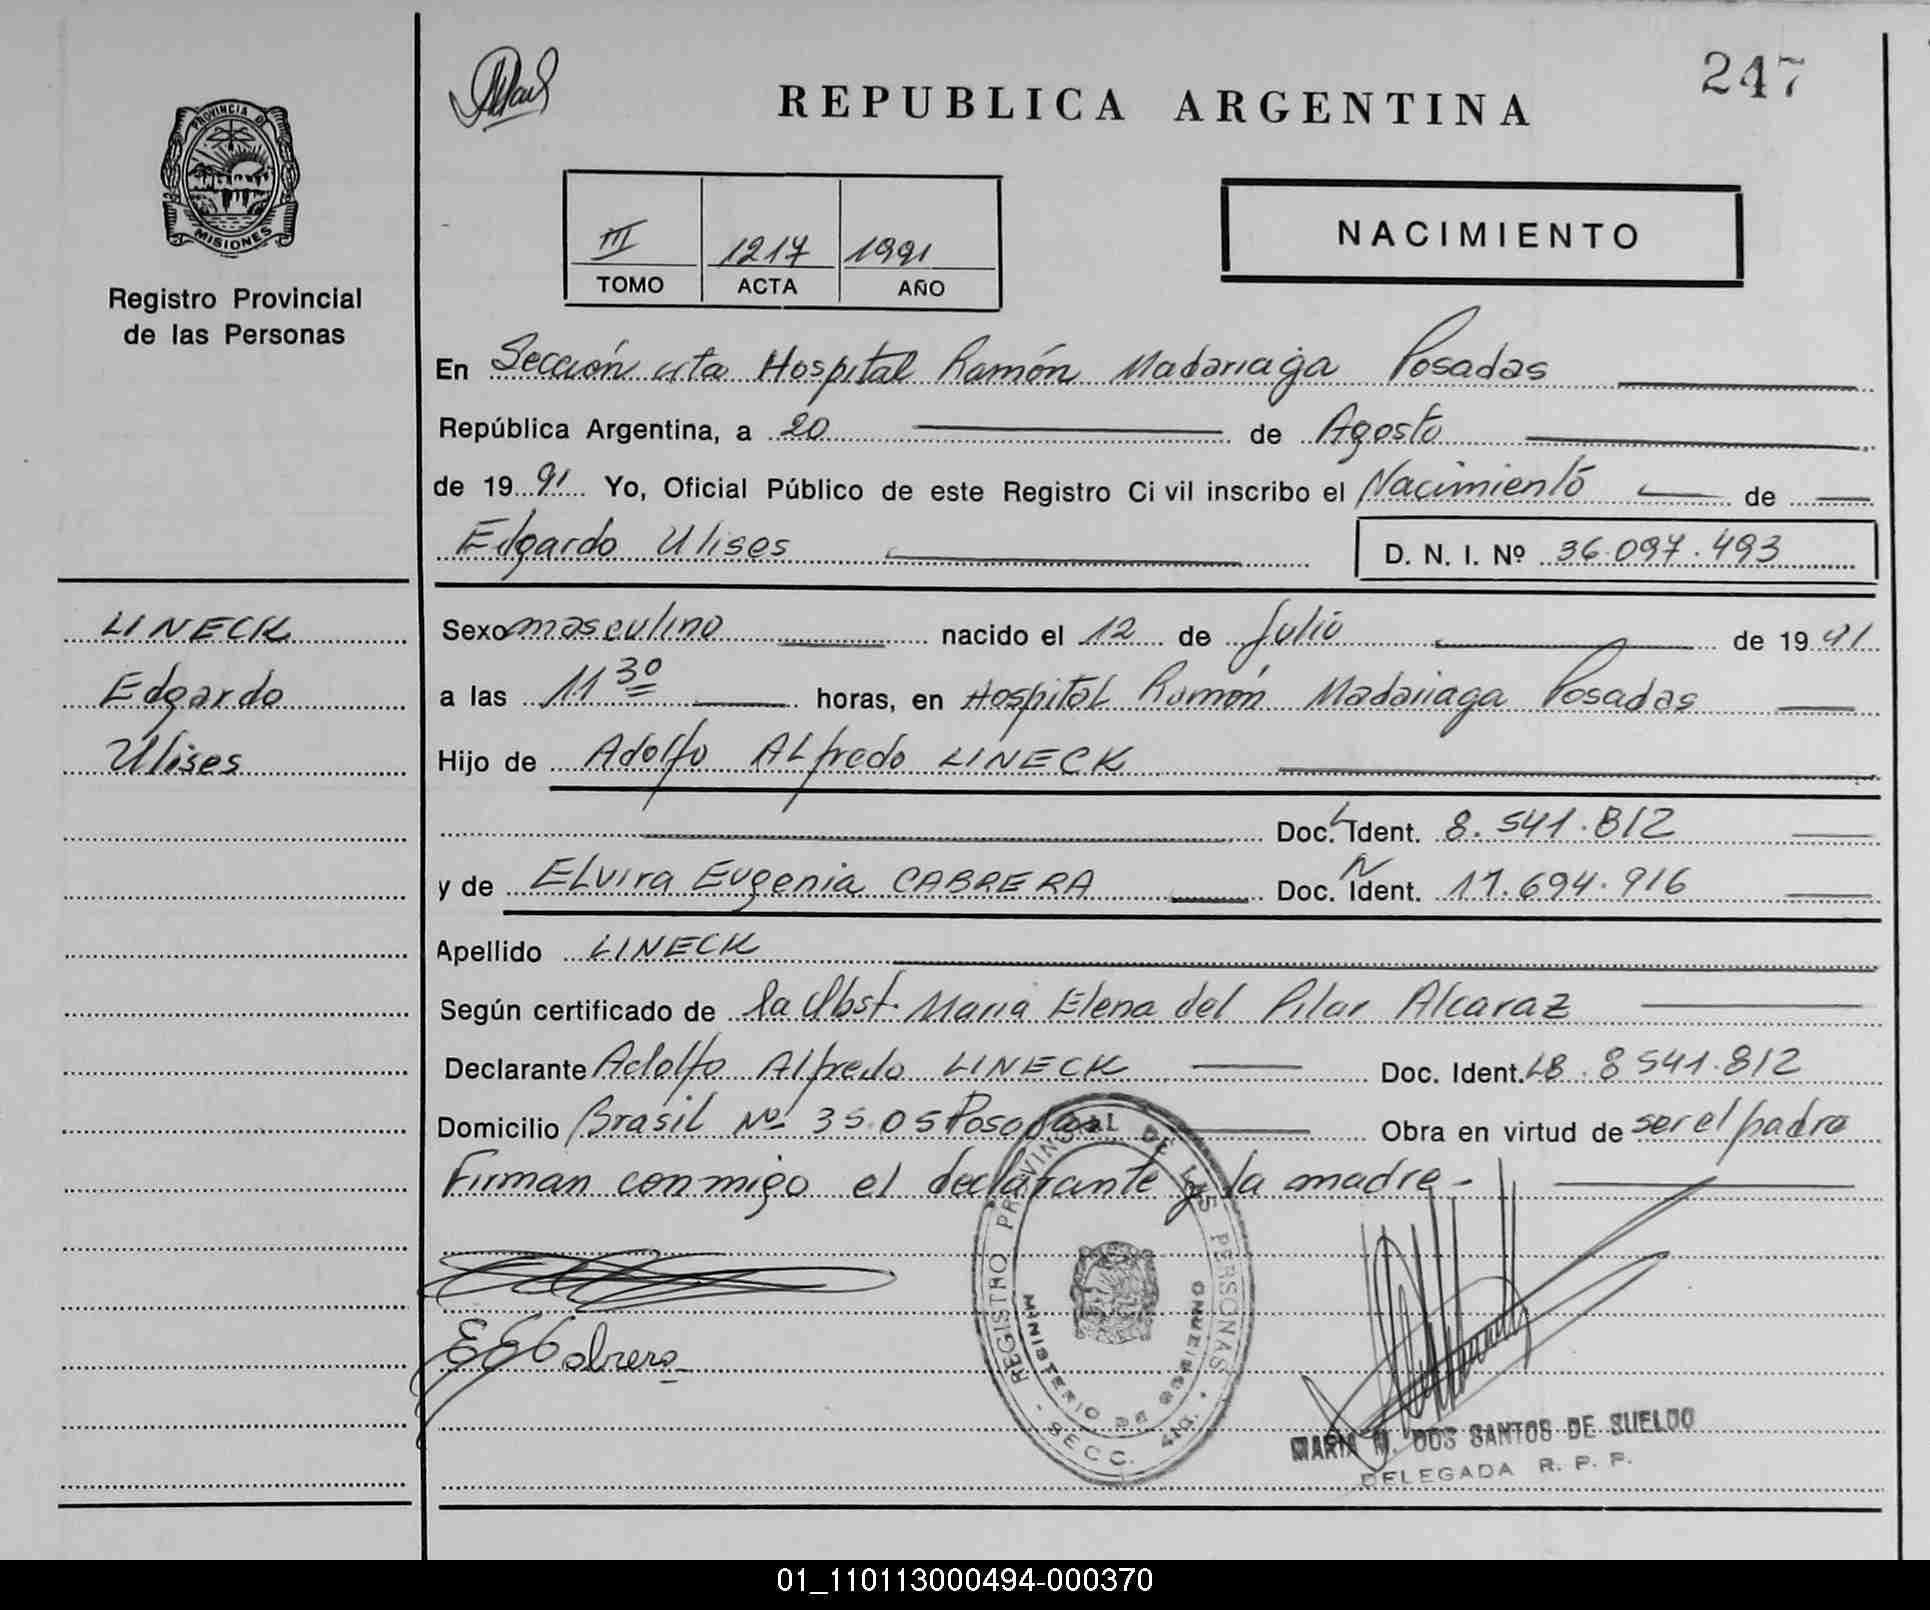 247
REPUBLICA ARGENTINA
PROVINCIA DE
MISIONES
Registro Provincial
de las Personas
III 1217 1991
TOMO ACTA AÑO
NACIMIENTO
En Sección 4ta Hospital Ramón Madariaga Posadas
República Argentina, a 20 de Agosto
de 1991 Yo, Oficial Público de este Registro Civil inscribo el Nacimiento de
Edgardo Ulises D. N. I. Nº 36.097.493
LINECK
Edgardo
Ulises
Sexo masculino nacido el 12 de Julio de 1991
a las 11 30 horas, en Hospital Ramón Madariaga Posadas
Hijo de Adolfo Alfredo LINECK
Doc. Ident. 8.541.812
y de Elvira Eugenia CABRERA Doc. Ident. 11.694.916
Apellido LINECK
Según certificado de la Obst. Maria Elena del Pilar Alcaraz
Declarante Adolfo Alfredo LINECK Doc. Ident. LB. 8541.812
Domicilio Brasil Nº 3505 Posadas Obra en virtud de ser el padre
Firman conmigo el declarante y la madre-
EECabrera
REGISTRO PROVINCIAL DE LAS PERSONAS
MINISTERIO DE GOBIERNO
- SECC. 4ta. -
MARIA M. DOS SANTOS DE SUELDO
DELEGADA R. P. P.
01_110113000494-000370